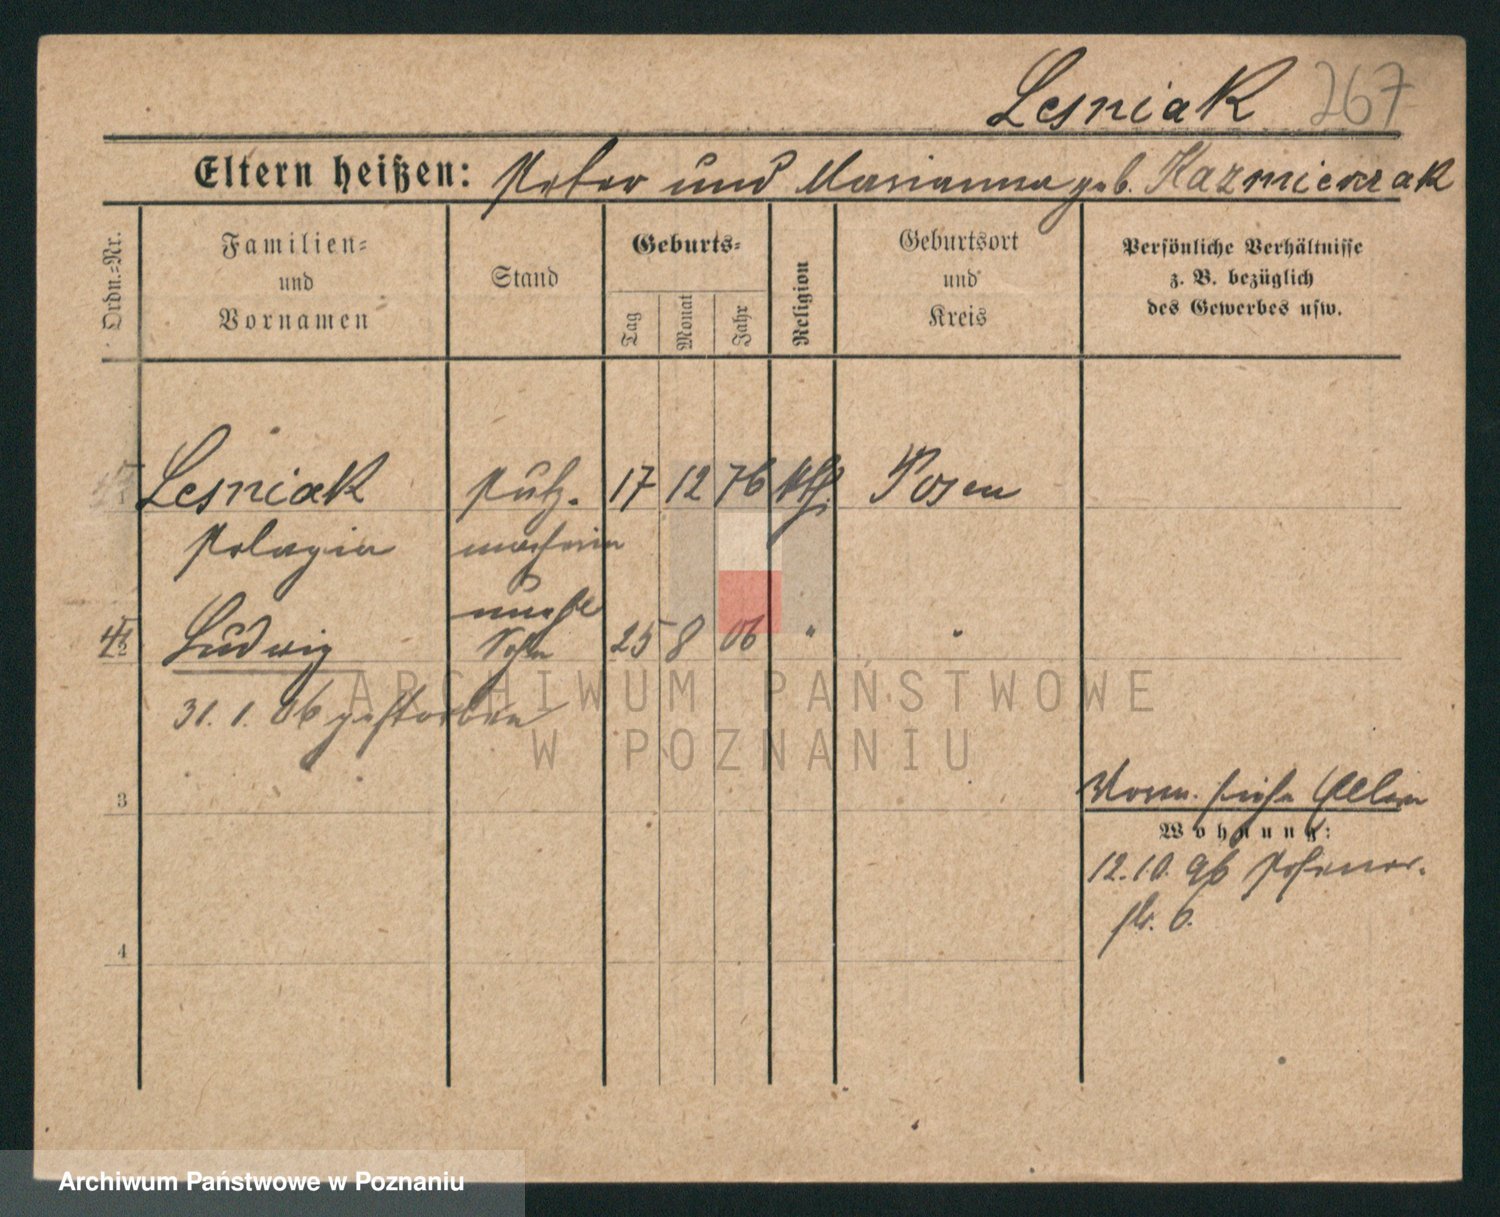 Lesniak 267
Eltern heißen: Peter und Marianna geb. Kazmierzak
Ordn.-Nr.
Familien-
und
Vornamen
Stand
Geburts-
Tag
Monat
Jahr
Religion
Geburtsort
und
Kreis
Persönliche Verhältnisse
z. B. bezüglich
des Gewerbes usw.
1 Lesniak Putz- 17 12 76 kth. Posen
Pelagia macherin
unehe
2 Ludwig Sohn 25 8 06 " "
31. 1. 06 gestorben
3
Vorm. siehe Eltern
Wohnung:
12. 10. 96
str. 6.
4
ARCHIWUM PAŃSTWOWE
W POZNANIU
Archiwum Państwowe w Poznaniu